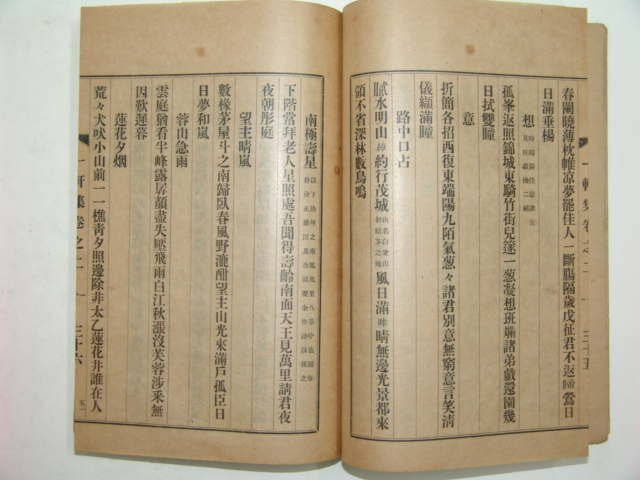 春闌曉薄枕帷凉夢罷佳人一斷膓隔歲戍征君不返歸當日
日滿垂楊
想
孤峯返照錦城東騎竹街兒篴一葱凝想班斕諸弟戱還園幾
日拭雙瞳
意
折簡各招西復東端陽九陌氣葱々諸君别意無窮意言笑淸
儀纈滿瞳
路中口占
膩水明山約行茂城風日滿晴無邊光景都來
領不省深林數鳥鳴
一軒集卷之二
三十五
南極壽星
下階當拜老人星照處吾聞得壽齡南面天王見萬里請君夜
夜朝彤庭
望主晴嵐
數椽茅屋斗之南歸臥春風野漉酣望主山光來滿戶孤臣日
日夢和嵐
蓉山急雨
雲庭猶看半峰露孱顔盡失眠飛雨白江秋漲沒芙蓉涉采無
因歎遲暮
蓮花夕烟
荒々犬吠小山前一一樵靑夕照邊除非太乙蓮花井誰在人
一軒集卷之二
三十六